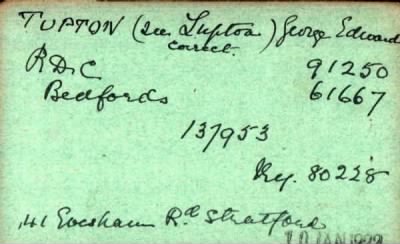 TUPTON (see Lupton) George Edward
correct.
R.D.C 91250
Bedfords 61667
137953
Rly. 80228
141 Evesham Rd Stratford
10 JAN 1922